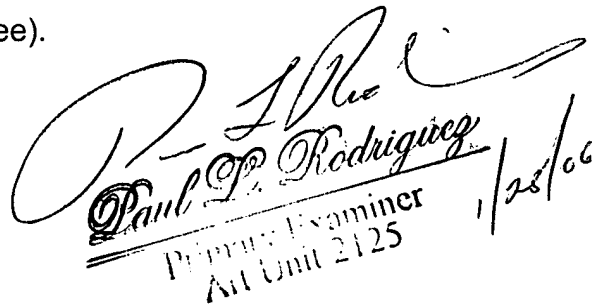 ee).
Paul L. Rodriguez
Primary Examiner
Art Unit 2125
1/28/06